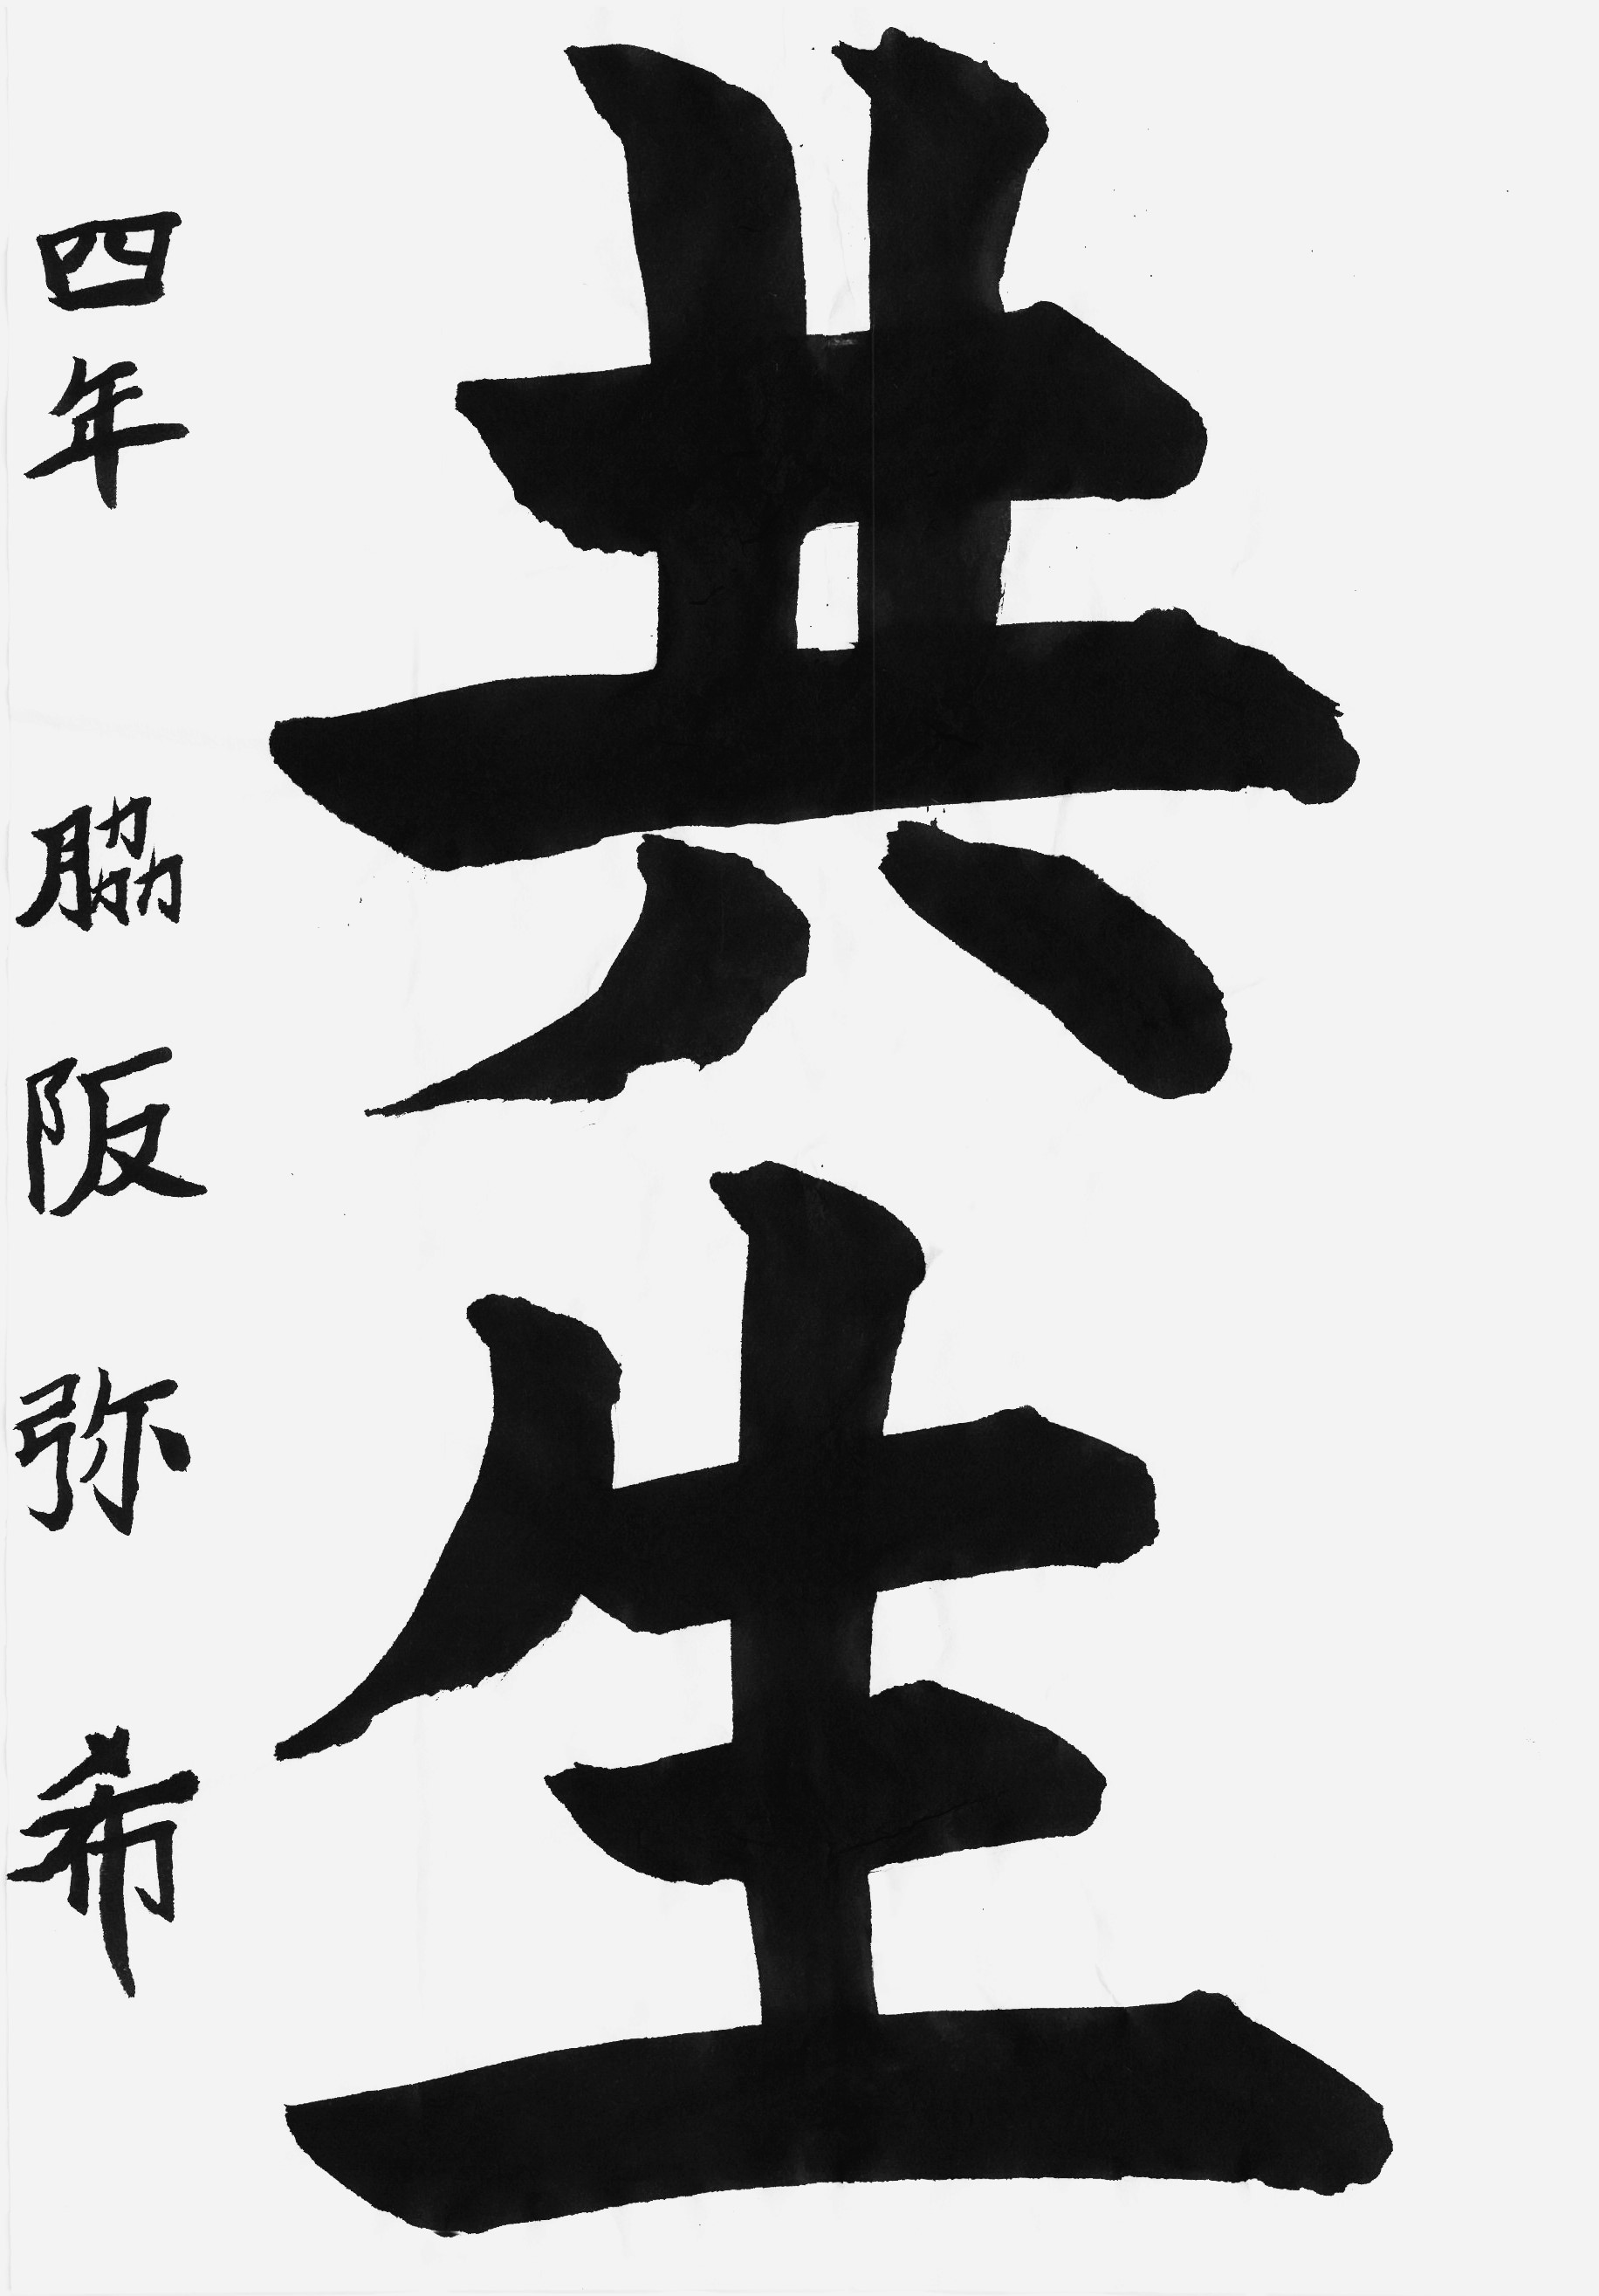 共生
四年 脇阪弥希